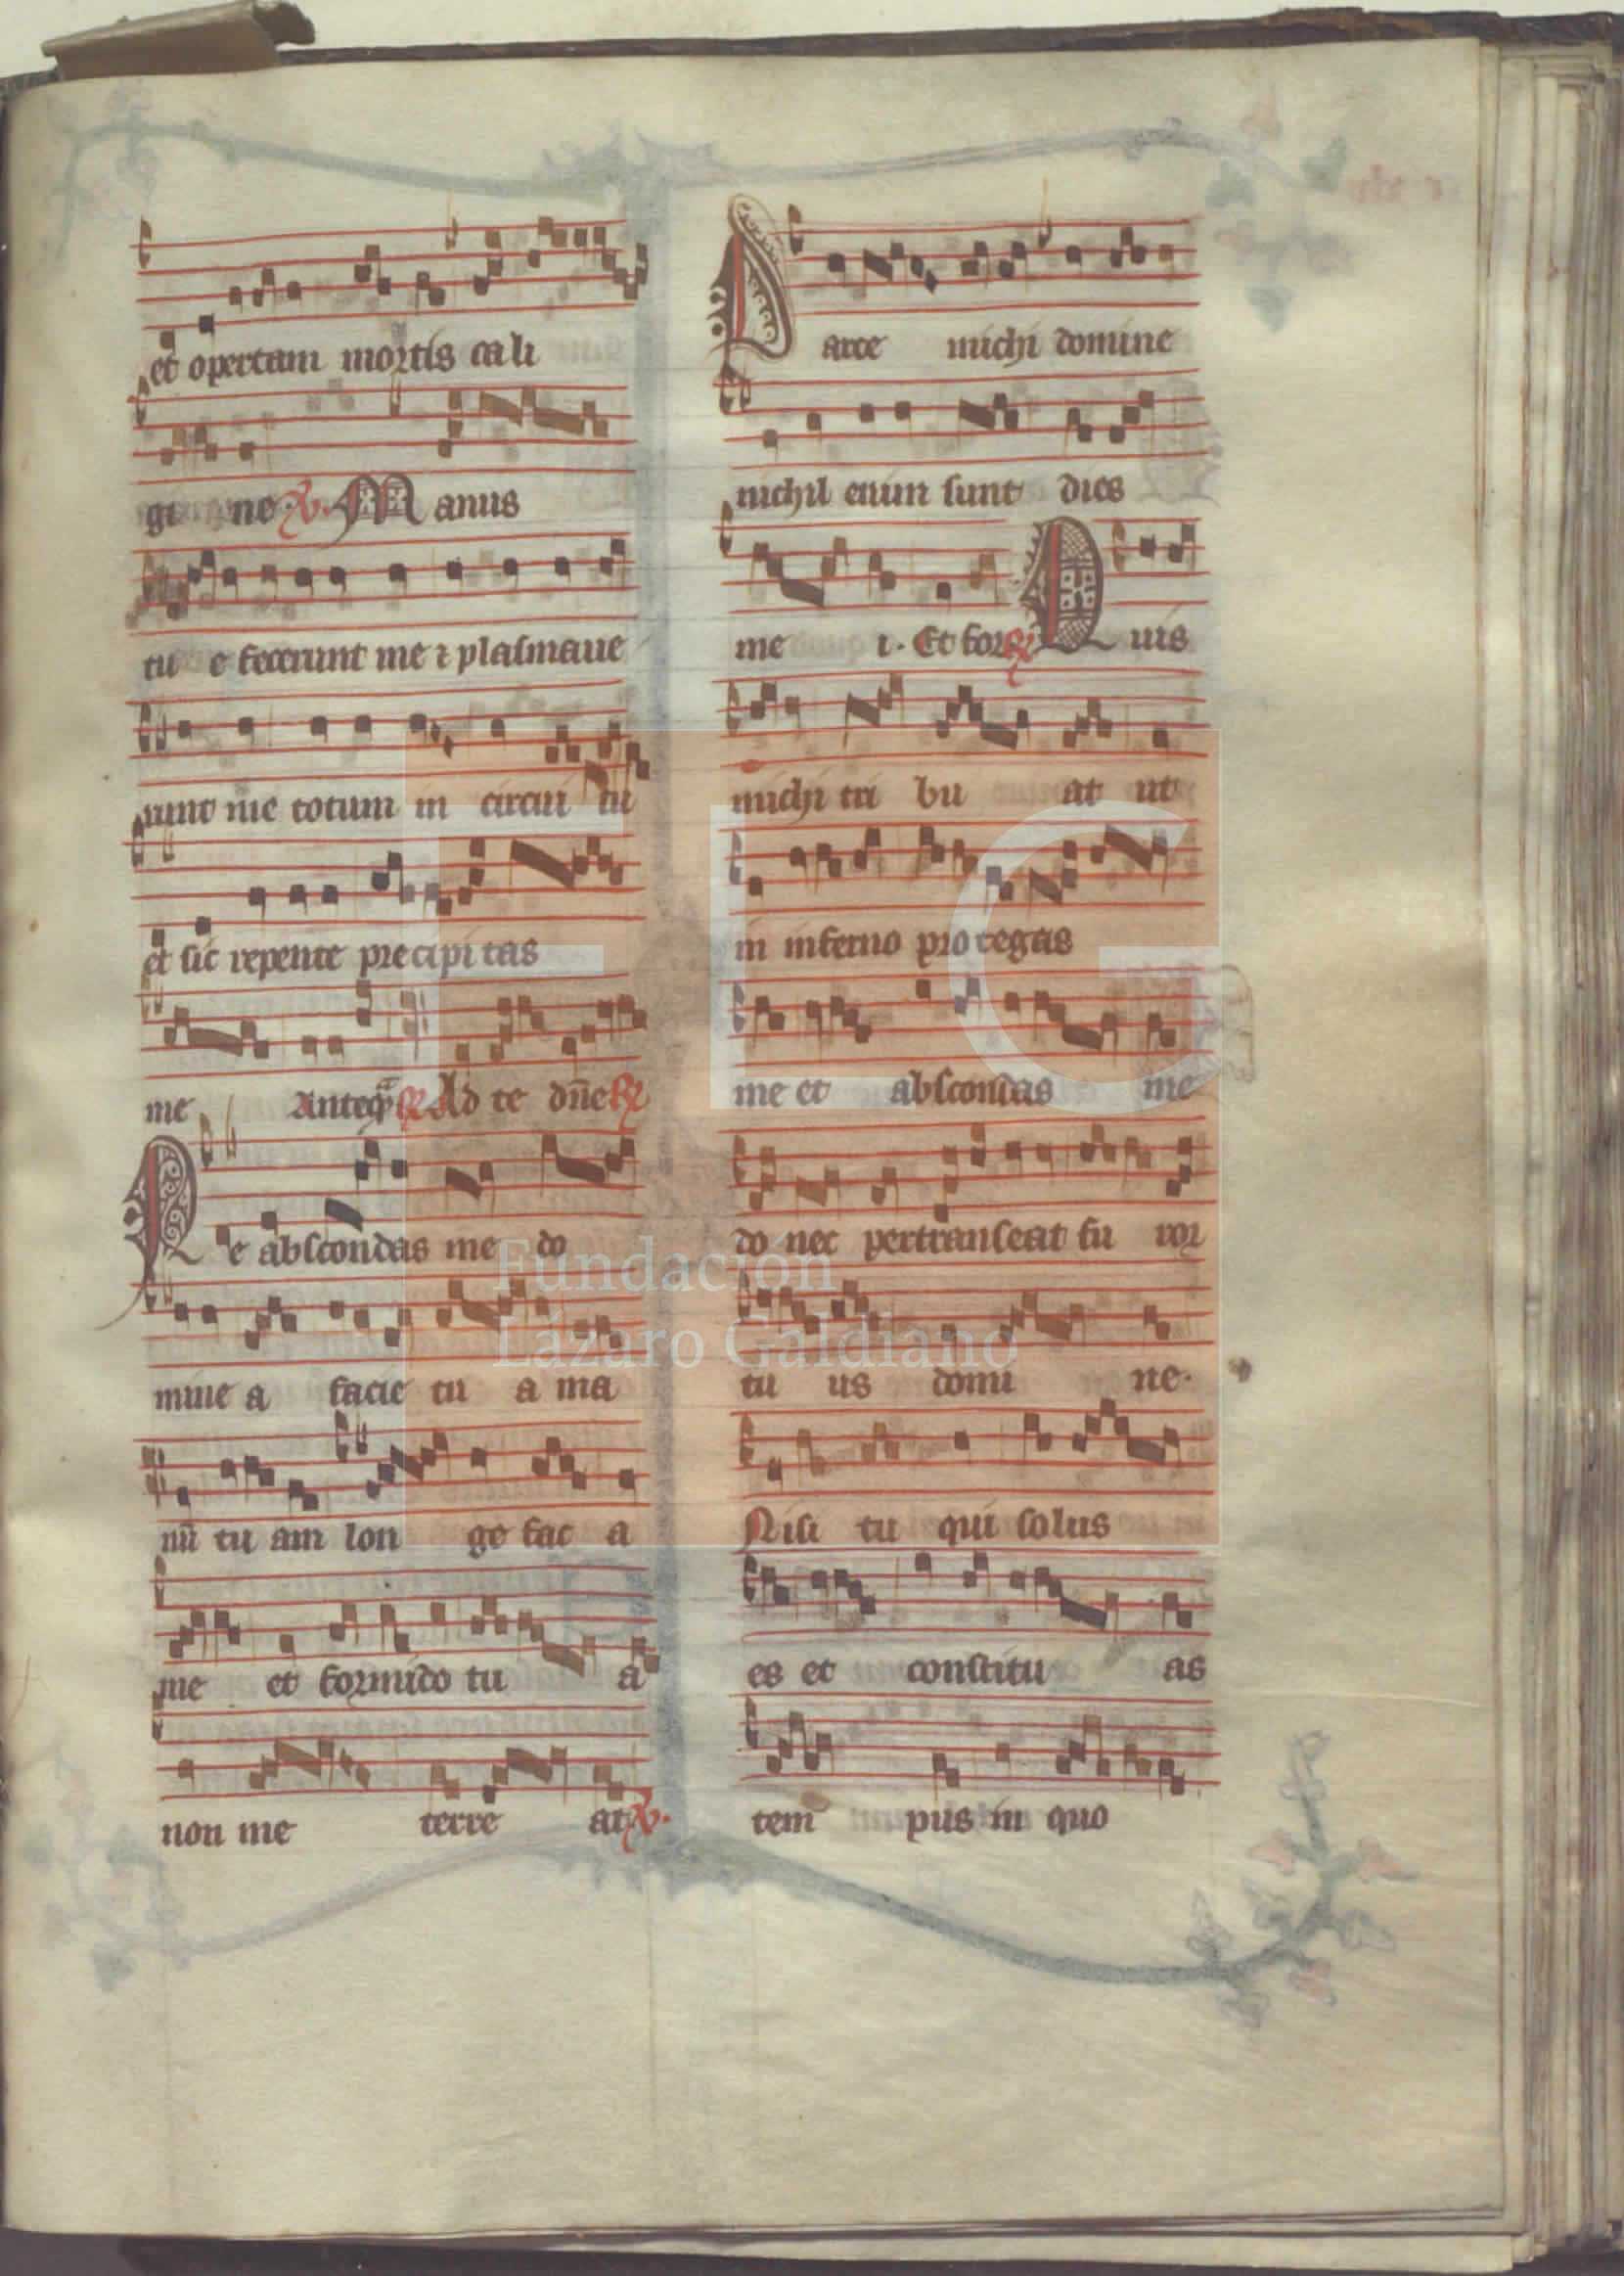 et opertam mortis cali
gi ne. ℣. Manus
tu e fecerunt me ⁊ plasmaue
runt me totum in circui tu
et sic repente precipi tas
me Anteq̄ ℟ Ad te dn̄e ℟
Ne abscondas me do
mine a facie tu a ma
nū tu am lon ge fac a
me et formido tu a
non me terre at ℣.
Parce michi domine
nichil enim sunt dies
me i. Et for ℟ Quis
michi tri bu at ut
in inferno pro tegas
me et abscondas me
do nec pertranseat fu ror
tu us domi ne.
Nisi tu qui solus
es et constitu as
tem pus in quo
FLG
Fundación
Lázaro Galdiano